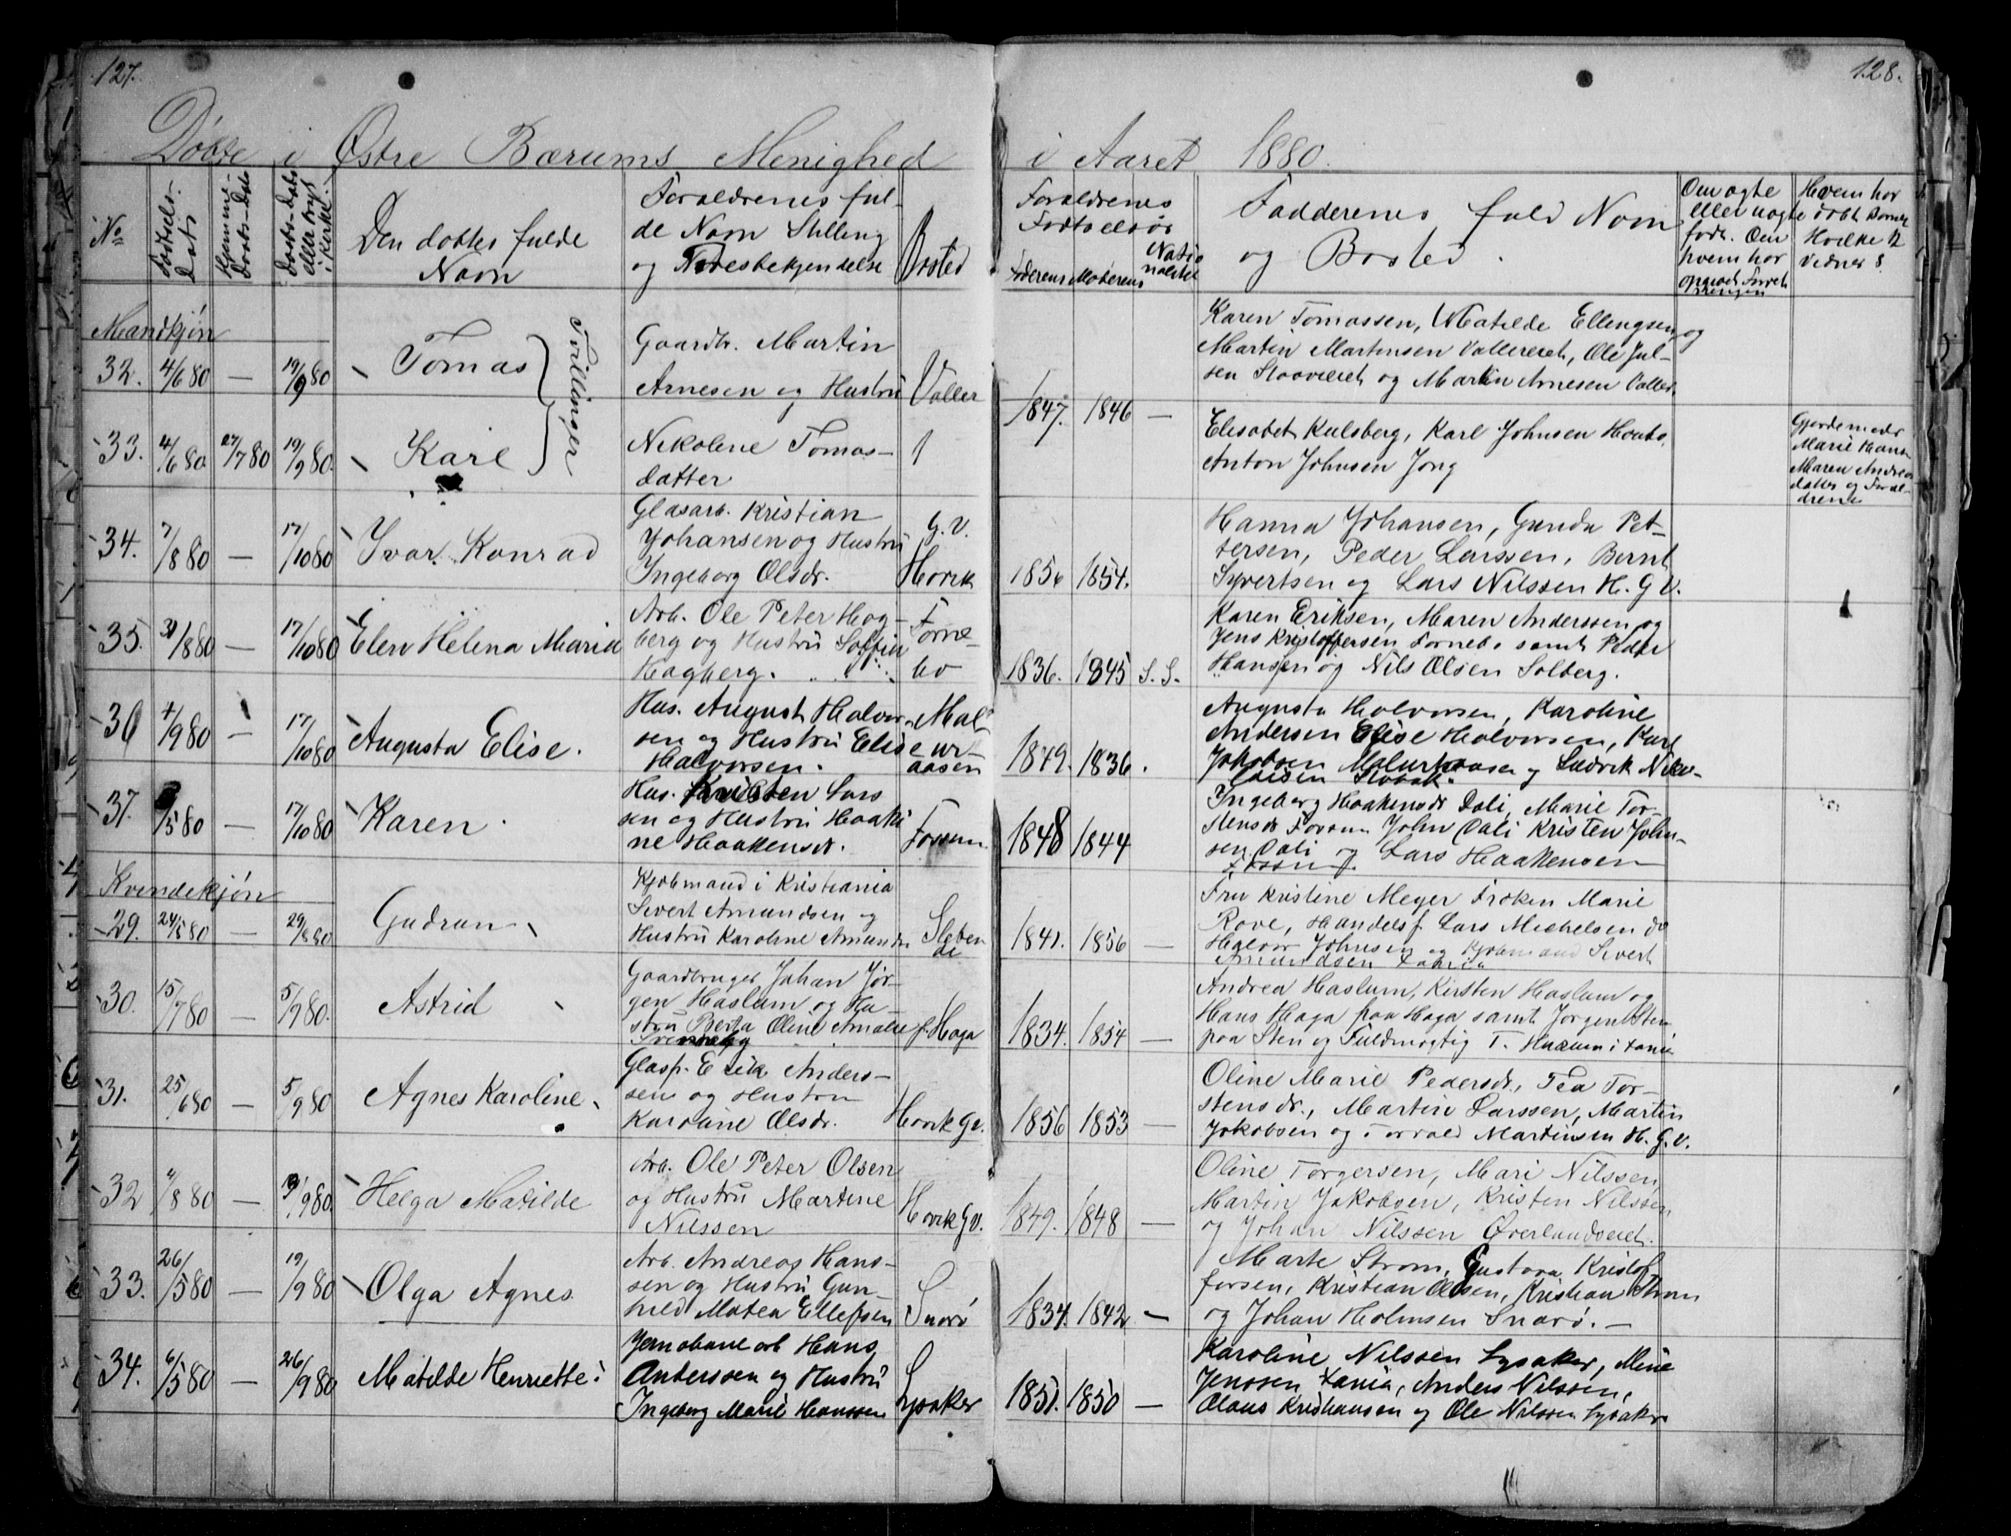 127.
128.
Døbte i Østre Bærums Menighed i Aaret 1880.
No
Fødsels-Dato
Hjemme-Daabs-Dato
Daabs-Dato eller dags i Kirke.
Den døbtes fulde Navn
Foraldrenes ful-
de Navn Stilling
og
Bosted
Foraldrenes
Fødselsår
Faderens Moderens
Natio
nalitet
Faddernes fuld Navn
og Bosted.
Om ægte
eller uægte
født. Om
hvem har
Hvem har
døbt Barnet
Hvilke 2
Vidner
Mandkjøn
32. 4/6 80 — 19/9 80 Tomas
Tvillinger
Gaardbr. Martin
Arnesen og Hustru
Valler
1847. 1846 —
Karen Tomassen, Matilde Ellingsen og
Martin Martinsen Vallereiet, Ole Jul-
sen og Martin Arnesen Valler.
33. 4/6 80 27/7 80 19/9 80. Karl
Nikoline Tomas-
datter
Elisabet Kulsberg, Karl Johnsen
Anton Johnsen Jong
Marie Hans
Maren Andrea
datter og Foral-
drene
34. 7/8 80 — 17/10 80 Ivar Konrad
Glasarb. Kristian
Johansen og Hustru
Ingeborg Olsdr.
G.V.
Høvik
1856 1854.
Hanna Johansen, Gunda Pet-
tersen, Peder Larssen, Bernt
Syvertsen og Lars Nilssen H. G V.
35. 31/8 80 — 17/10 80 Elen Helena Maria
Arb. Ole Peter Hag-
berg og Hustru Soffia
Hagberg.
Forne-
bo
1836. 1845 S. S.
Karen Eriksen, Maren Anderssen og
Jens Kristoffersen Fornebo samt Peder
Hansen og Nils Olsen Solberg.
36 4/9 80 — 17/10 80 Augusta Elise.
Hus. August Halvor-
sen og Hustru Elise
Halvorsen.
Mal
ur
aasen
1849. 1836.
Augusta Halvorsen, Karoline
Andersen Elise Halvorsen, Karl
Jakobsen og Ludvik Niko-
laisen
37. /5 80 — 17/10 80 Karen
Hus. Kristen Lars
sen og Hustru Haaki
ne Haakensdr.
Fossum
1848 1844
Ingeborg Haakensdr Dali, Marie Tor-
stensdr Fossum John Dali Kristen John-
sen Dali og Lars Haakensen
Fossum
Kvindekjøn
29. 24/5 80 — 29/8 80 Gudrun
Kjøbmand i Kristiania
Sivert Amundsen og
Hustru Karoline Amunds
Sleben
de
1841. 1856 —
Fru Kristine Meyer Frøken Marie
Rove, Handelsf. Lars Michelsen do
Halvor Johnsen og Kjøbmand Sivert
Amundsen
30. 15/7 80 — 5/9 80. Astrid
Gaardbruger Johan Jør-
gen Haslum og Hu-
stru Berta Oline Amalie
f. Haga
1834. 1854 —
Andrea Haslum, Kirsten Haslum og
Hans Haga paa Haga samt Jørgen Sten
paa Sten og Fuldmægtig T. Haslum i Xania
31. 25/6 80 — 5/9 80 Agnes Karoline
Glasp. Erik Anders-
sen og Hustru
Karoline Olsdr.
Høvik Gv.
1856 1853 —
Oline Marie Pedersdr., Tea Tor-
stensdr., Martin Larssen, Martin
Jakobsen og Torvald Martinsen H. G. V.
32 /8 80 — /9 80. Helga Matilde
Arb. Ole Peter Olsen
og Hustru Martine
Nilssen
Høvik Gv.
1849. 1848 —
Oline Torgersen, Mari Nilssen
Martin Jakobsen, Kristen Nilssen
og Johan Nilssen Øverlandseiet.
33. 26/5 80 — 19/9 80 Olga Agnes
Arb. Andreas Hans-
sen og Hustru Gun-
hild Matea Ellefsen
Snarø
1834. 1842 —
Marte Strøm, Gustava Kristof
fersen, Kristian Olsen, Kristian Strøm
og Johan Holmsen Snarø. —
34. 6/5 80 — 26/9 80 Matilde Henriette
Jernbane arb Hans
Anderssen og Hustru
Ingeborg Marie Hanssen
Lysaker
1851. 1850 —
Karoline Nilssen Lysaker, Mine
Jenssen Xania, Anders Nilssen,
Olaus Kristiansen og Ole Nilssen Lysaker